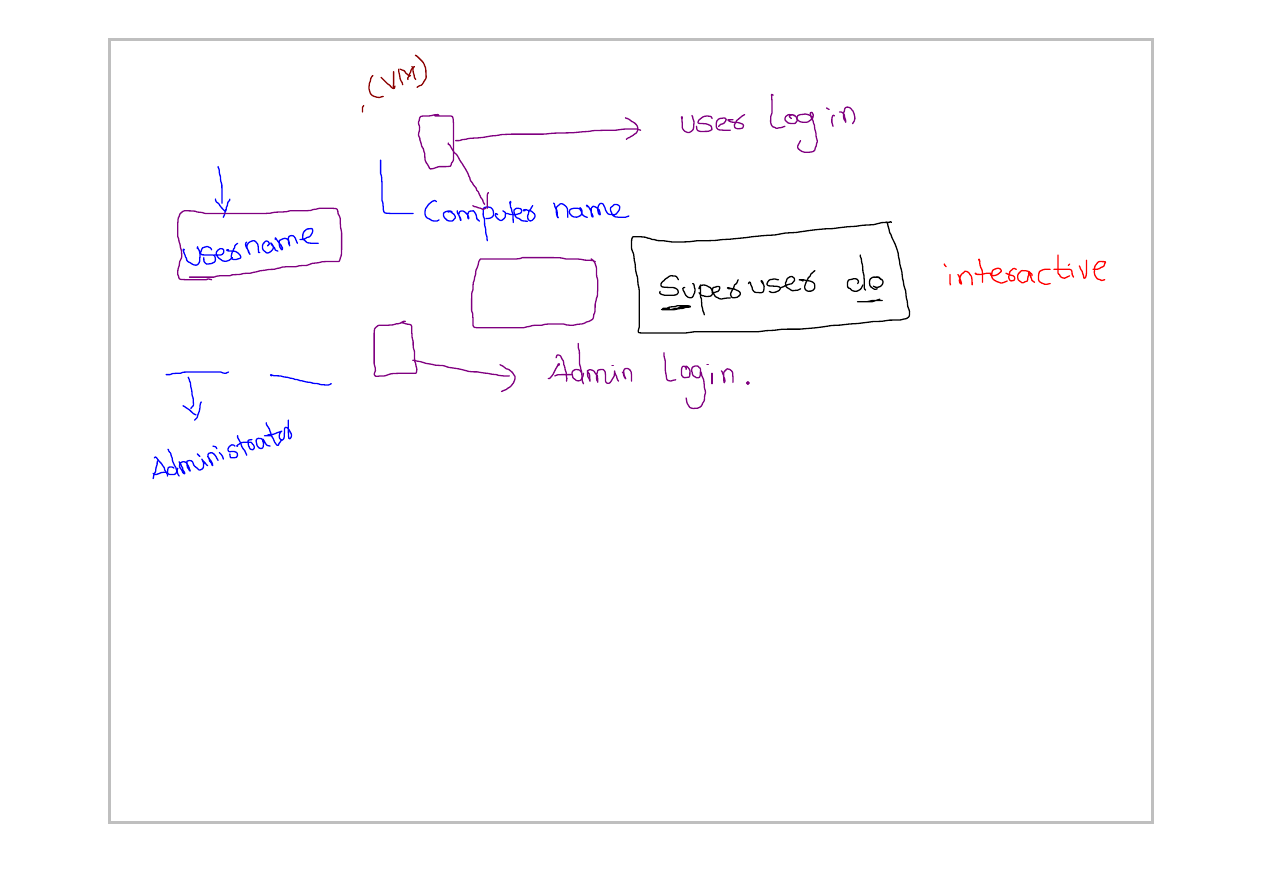 (VM)
user Login
Computer name
username
Superuser do
interactive
Admin Login.
Administrator